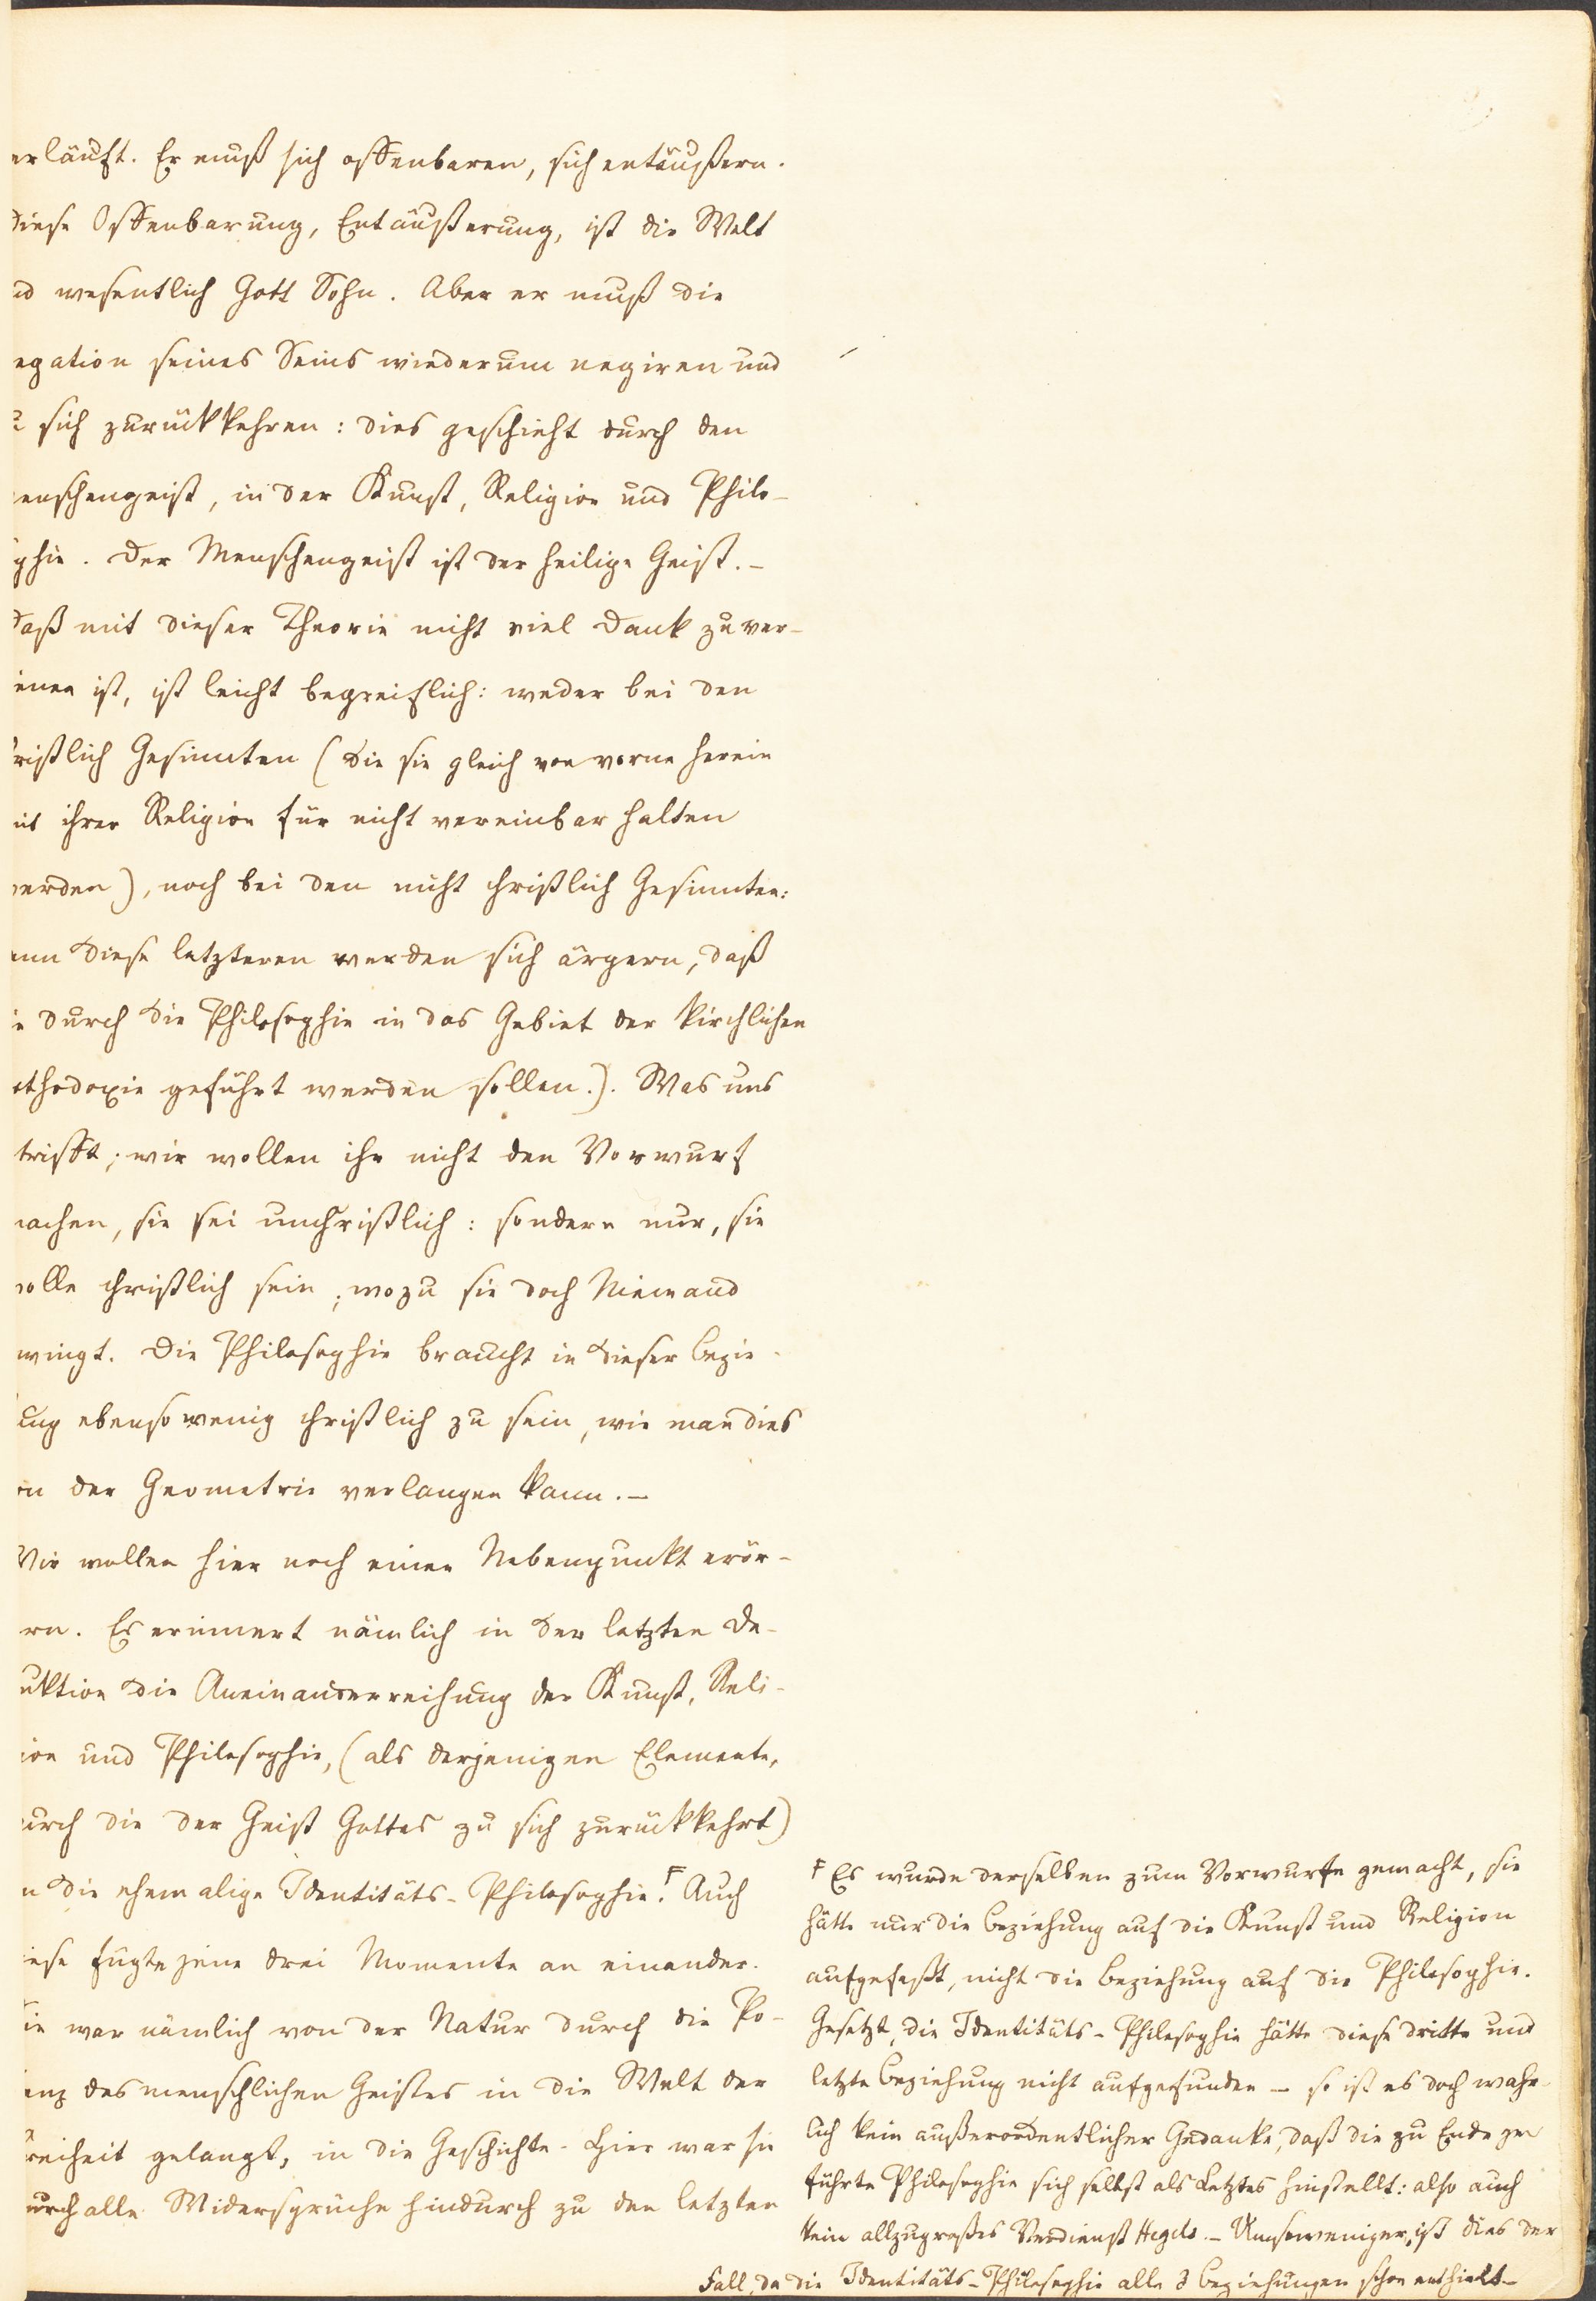 erläuft. Er muß sich offenbaren, sich entäußern.
diese Offenbarung, Entäußerung, ist die Welt
nd wesentlich Gott Sohn. Aber er muß die
egation seines Seins wiederum negiren und
u sich zurückkehren: dies geschieht durch den
enschengeist, in der Kunst, Religion und Philo-
phie. Der Menschengeist ist der heilige Geist. –
daß mit dieser Theorie nicht viel Dank zu ver-
ienen ist, ist leicht begreiflich: weder bei den
ristlich Gesinnten (die sie gleich von vorne herein
it ihrer Religion für nicht vereinbar halten
werden), noch bei den nicht christlich Gesinnten:
enn diese letzteren werden sich ärgern, daß
ie durch die Philosophie in das Gebiet der kirchlichen
rthodoxie geführt werden sollen.). Was uns
trifft; wir wollen ihr nicht den Vorwurf
machen, sie sei unchristlich: sondern nur, sie
wolle christlich sein, wozu sie doch Niemand
wingt. Die Philosophie braucht in dieser Bezie-
ung ebensowenig christlich zu sein, wie man dies
on der Geometrie verlangen kann. –
Wir wollen hier noch einen Nebenpunkt erör-
rn. Es erinnert nämlich in der letzten De-
uktion die Aneinanderreihung der Kunst, Reli-
ion und Philosophie, (als derjenigen Elemente,
urch die der Geist Gottes zu sich zurückkehrt)
n die ehemalige Identitäts-Philosophie.F Auch
iese fügte jene drei Momente an einander.
Sie war nämlich von der Natur durch die Po-
enz des menschlichen Geistes in die Welt der
reiheit gelangt, in die Geschichte. Hier war sie
urch alle Widersprüche hindurch zu den letzten
F Es wurde derselben zum Vorwurfe gemacht, sie
hätte nur die Beziehung auf die Kunst und Religion
aufgefaßt, nicht die Beziehung auf die Philosophie.
Gesetzt, die Identitäts-Philosophie hätte diese dritte und
letzte Beziehung nicht aufgefunden – so ist es doch wahr-
lich kein außerordentlicher Gedanke, daß die zu Ende ge
führte Philosophie sich selbst als Letztes hinstellt: also auch
kein allzugroßes Verdienst Hegels. – Umsoweniger, ist dies der
Fall, da die Identitäts-Philosophie alle 3 Beziehungen schon enthielt –